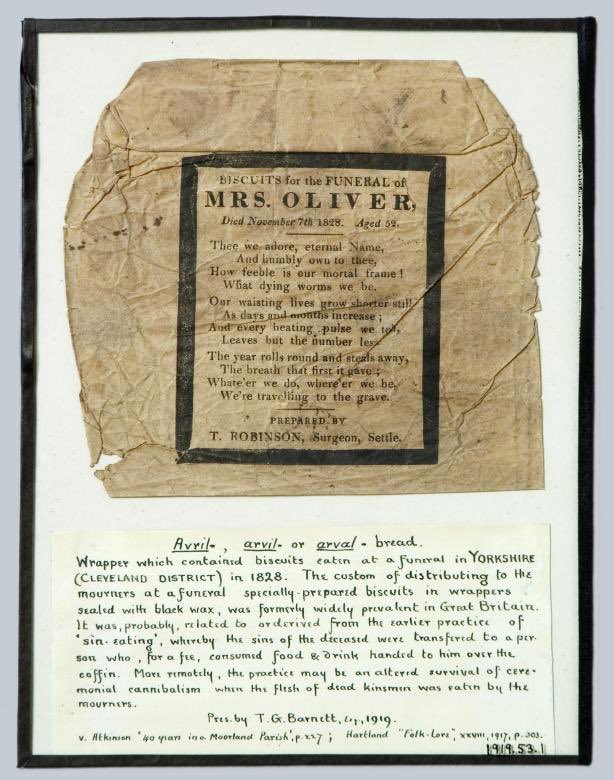 BISCUITS for the FUNERAL of
MRS. OLIVER,
Died November 7th 1828. Aged 52.
Thee we adore, eternal Name,
And humbly own to thee,
How feeble is our mortal frame!
What dying worms we be.
Our waisting lives grow shorter still
As days and months increase;
And every beating pulse we tell,
Leaves but the number less
The year rolls round and steals away,
The breath that first it gave;
Whate'er we do, where'er we be,
We're travelling to the grave.
PREPARED BY
T. ROBINSON, Surgeon, Settle.
Avril-, arvil- or arval-bread.
Wrapper which contained biscuits eaten at a funeral in YORKSHIRE
(CLEVELAND DISTRICT) in 1828. The custom of distributing to the
mourners at a funeral specially-prepared biscuits in wrappers
sealed with black wax, was formerly widely prevalent in Great Britain.
It was, probably, related to or derived from the earlier practice of
'sin-eating', whereby the sins of the deceased were transfered to a per-
son who, for a fee, consumed food & drink handed to him over the
coffin. More remotely, the practice may be an altered survival of cere-
monial cannibalism when the flesh of dead kinsmen was eaten by the
mourners.
Pres. by T. G. Barnett, Esq., 1919.
v. Atkinson '40 years in a Moorland Parish', p. 227; Hartland "Folk-Lore", xxviii, 1917, p. 303.
1919.53.1